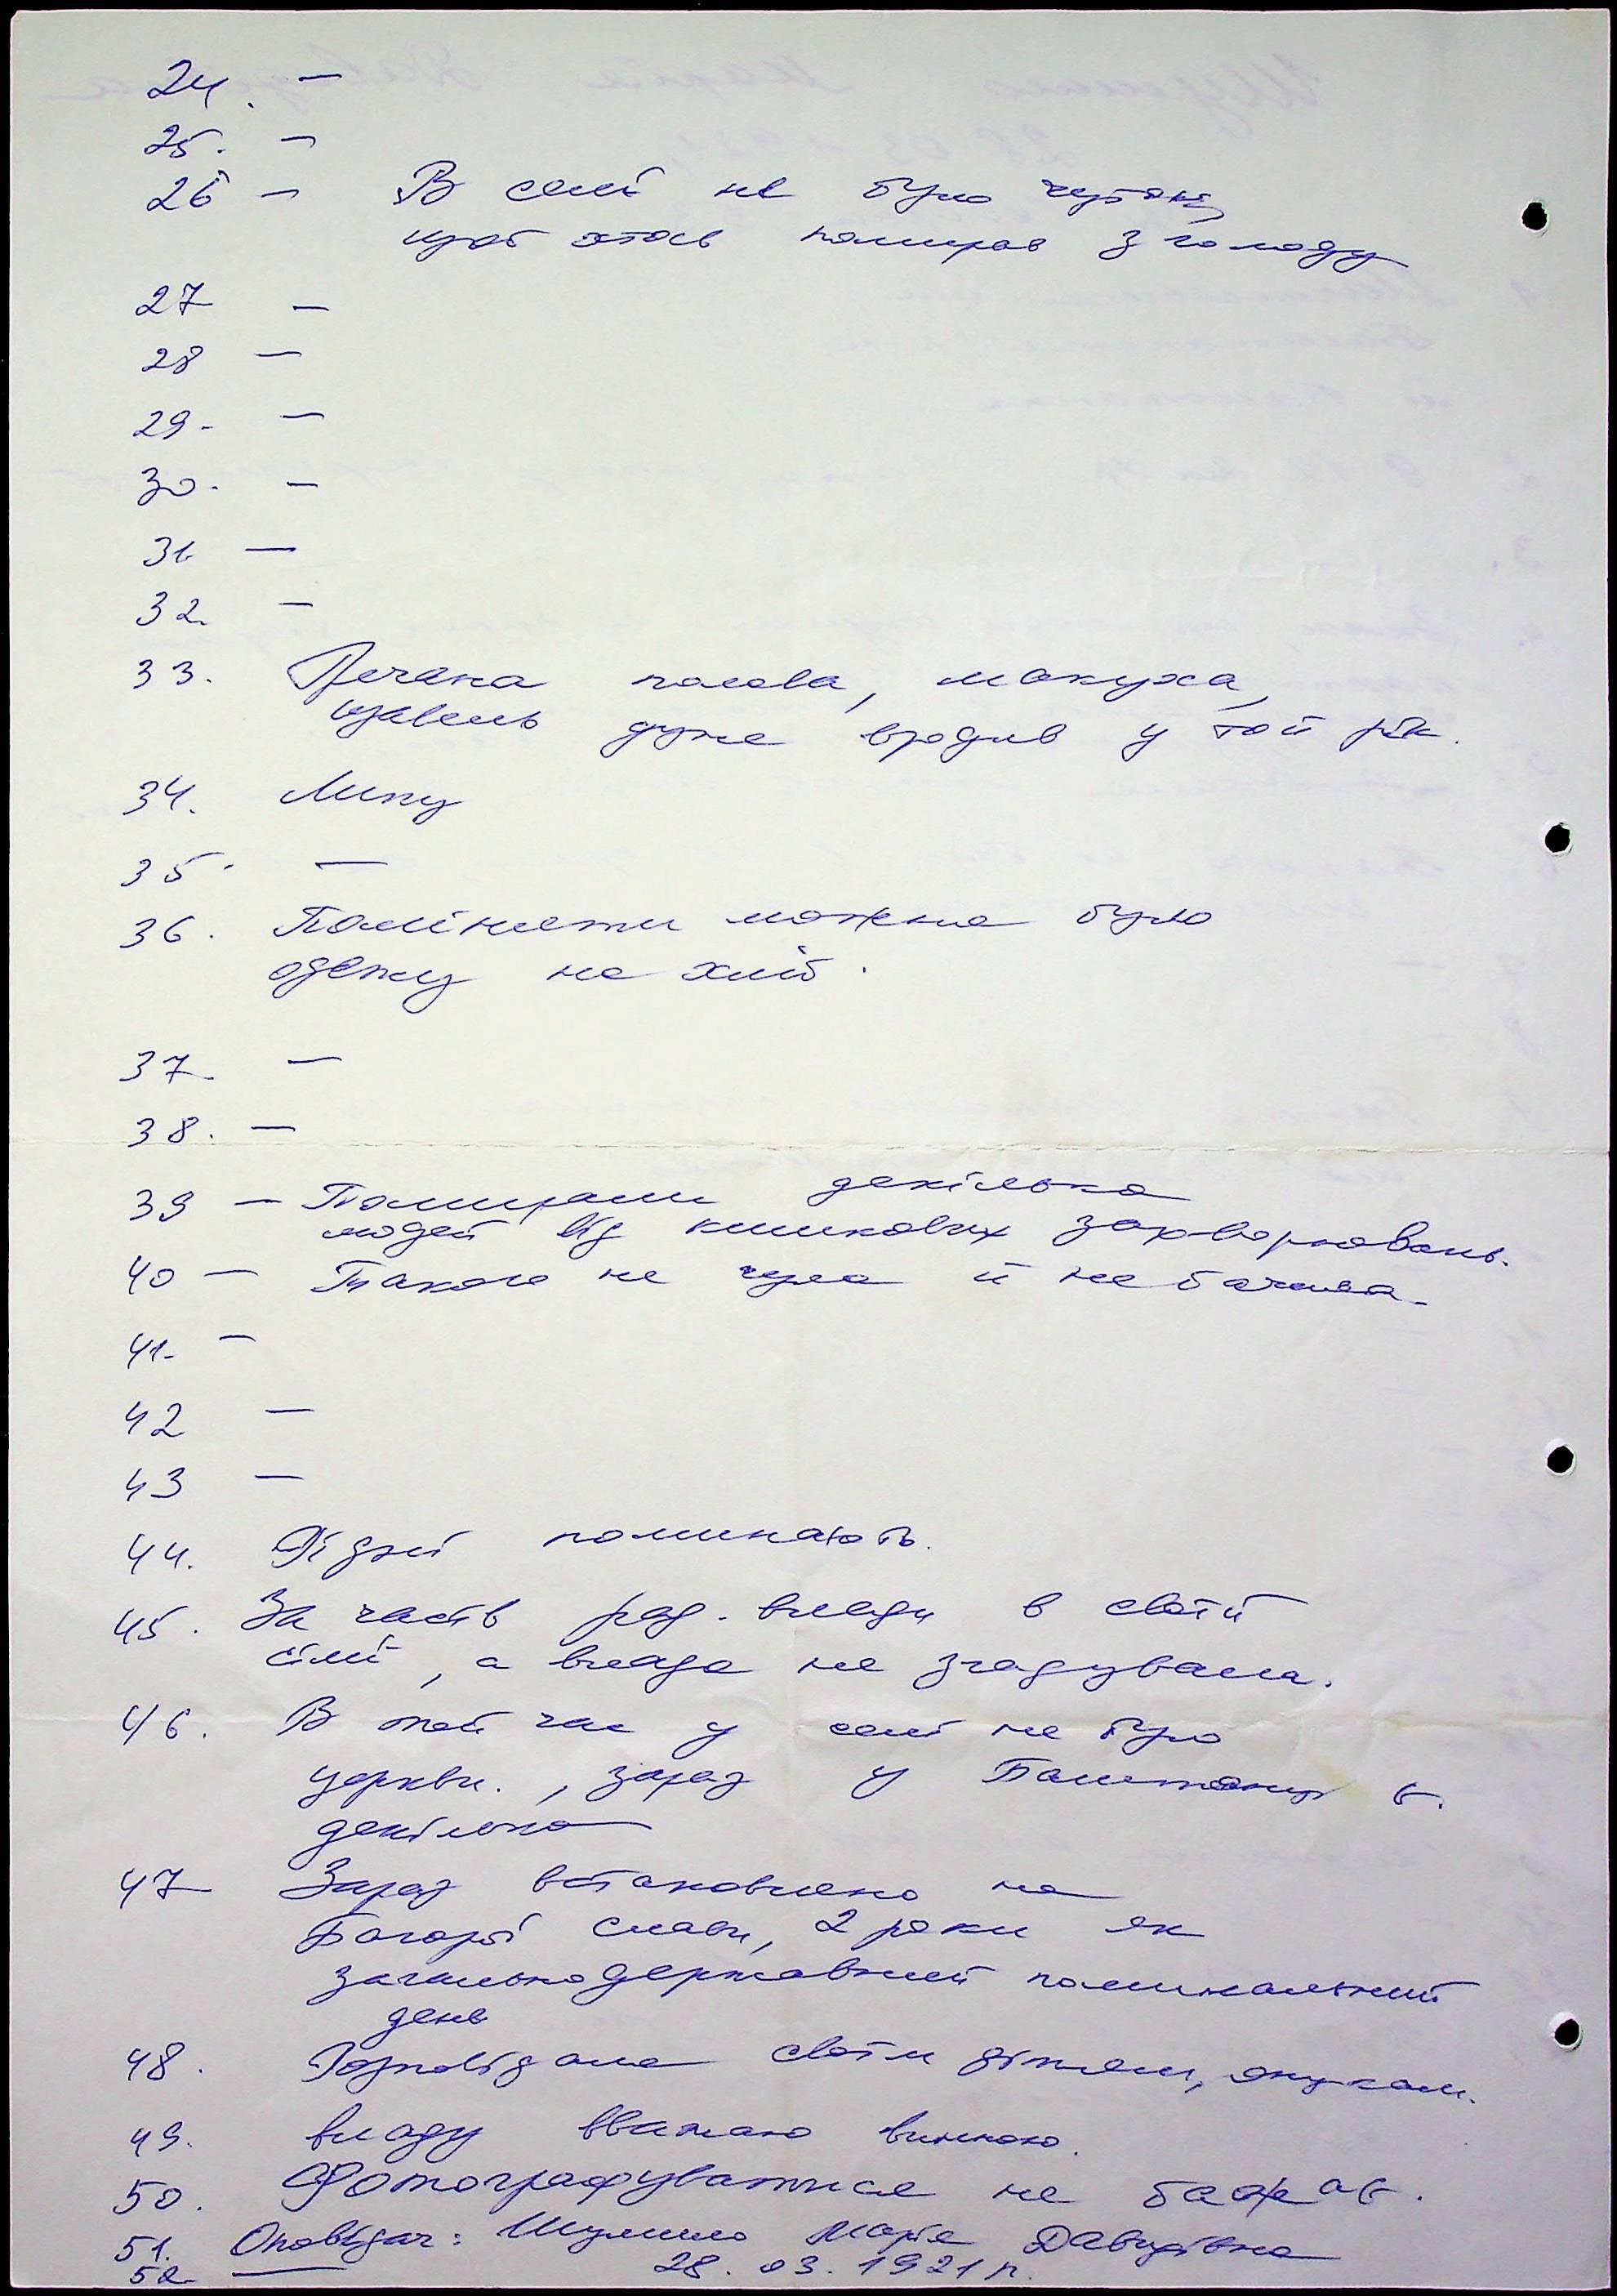 24. –
25. –
26 – В селі не було чутно,
щоб хтось помирав з голоду
27 –
28 –
29- –
30. –
31 –
32. –
33. Гречана полова, макуха,
щавель дуже вродив у той рік.
34. Липу
35. –
36. Поміняти можна було
одежу на хліб.
37. –
38. –
39 – Помирали декілька
людей від кишкових захворювань.
40 – Такого не чула й не бачила.
41. –
42 –
43 –
44. Рідні поминають.
45. За часів рад. влади в своїй
сімї, а влада не згадувала.
46. В той час у селі не було
церкви., зараз у Баштанці є.
декілька
47 Зараз встановлено на
Багорі слави, 2 роки як
загальнодержавний поминальний
день
48. Розповідала своїм дітям, онукам.
49. Владу вважаю винною.
50. Фотографуватися не бажав.
51. Оповідач: Марія Давидівна
52. — 28. 03. 1921 р.